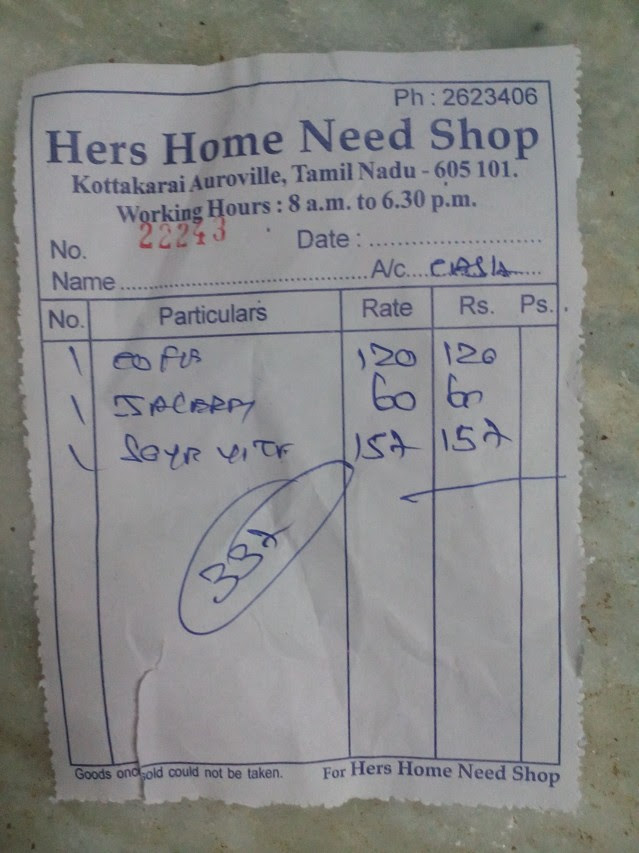 Ph : 2623406
Hers Home Need Shop
Kottakarai Auroville, Tamil Nadu - 605 101.
Working Hours : 8 a.m. to 6.30 p.m.
No. 22243 Date : ........................
Name ........................................ A/c... CASH ....
No. Particulars Rate Rs. Ps.
1 120 120
1 60 60
1 157 157
337
Goods once sold could not be taken. For Hers Home Need Shop